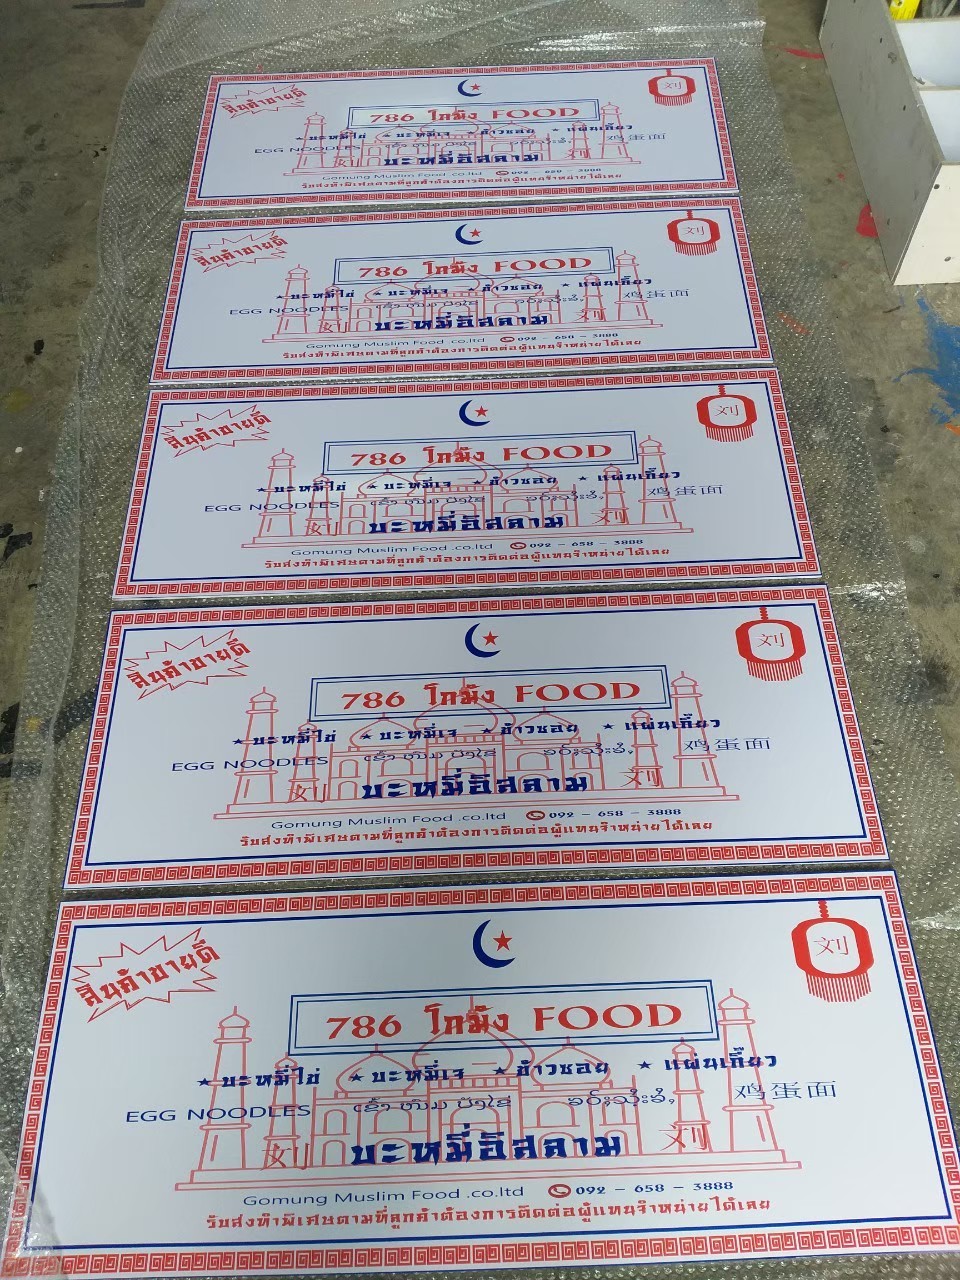 สินค้าขายดี
刘
786 โกมัง FOOD
★ บะหมี่ไข่ ★ บะหมี่เจ ★ ข้าวซอย ★ แผ่นเกี๊ยว
EGG NOODLES 鸡蛋面
刘 บะหมี่อิสลาม 刘
Gomung Muslim Food .co.ltd
รับสั่งทำพิเศษตามที่ลูกค้าต้องการติดต่อผู้แทนจำหน่ายได้เลย
สินค้าขายดี
刘
786 โกมัง FOOD
★ บะหมี่ไข่ ★ บะหมี่เจ ★ ข้าวซอย ★ แผ่นเกี๊ยว
EGG NOODLES 鸡蛋面
刘 บะหมี่อิสลาม 刘
Gomung Muslim Food .co.ltd 092 - 658 - 3888
รับสั่งทำพิเศษตามที่ลูกค้าต้องการติดต่อผู้แทนจำหน่ายได้เลย
สินค้าขายดี
刘
786 โกมัง FOOD
★ บะหมี่ไข่ ★ บะหมี่เจ ★ ข้าวซอย ★ แผ่นเกี๊ยว
EGG NOODLES 鸡蛋面
刘 บะหมี่อิสลาม 刘
Gomung Muslim Food .co.ltd 092 - 658 - 3888
รับสั่งทำพิเศษตามที่ลูกค้าต้องการติดต่อผู้แทนจำหน่ายได้เลย
สินค้าขายดี
刘
786 โกมัง FOOD
★ บะหมี่ไข่ ★ บะหมี่เจ ★ ข้าวซอย ★ แผ่นเกี๊ยว
EGG NOODLES 鸡蛋面
刘 บะหมี่อิสลาม 刘
Gomung Muslim Food .co.ltd 092 - 658 - 3888
รับสั่งทำพิเศษตามที่ลูกค้าต้องการติดต่อผู้แทนจำหน่ายได้เลย
สินค้าขายดี
刘
786 โกมัง FOOD
★ บะหมี่ไข่ ★ บะหมี่เจ ★ ข้าวซอย ★ แผ่นเกี๊ยว
EGG NOODLES 鸡蛋面
刘 บะหมี่อิสลาม 刘
Gomung Muslim Food .co.ltd 092 - 658 - 3888
รับสั่งทำพิเศษตามที่ลูกค้าต้องการติดต่อผู้แทนจำหน่ายได้เลย